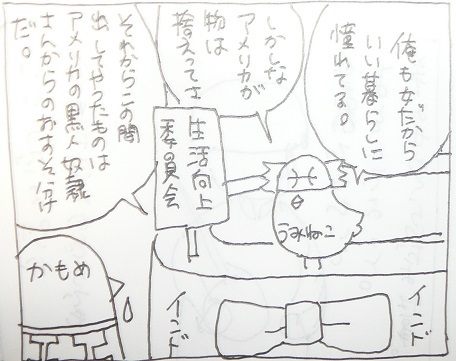 俺も女だから
いい暮らしに
憧れてる。
しかしな
アメリカが
物は
捨えってさ
それからこの間
出してやったものは
アメリカの黒人奴隷
さんからのおすそ分け
だ。
生活向上
委員会
うみねこ
かもめ
インド
インド